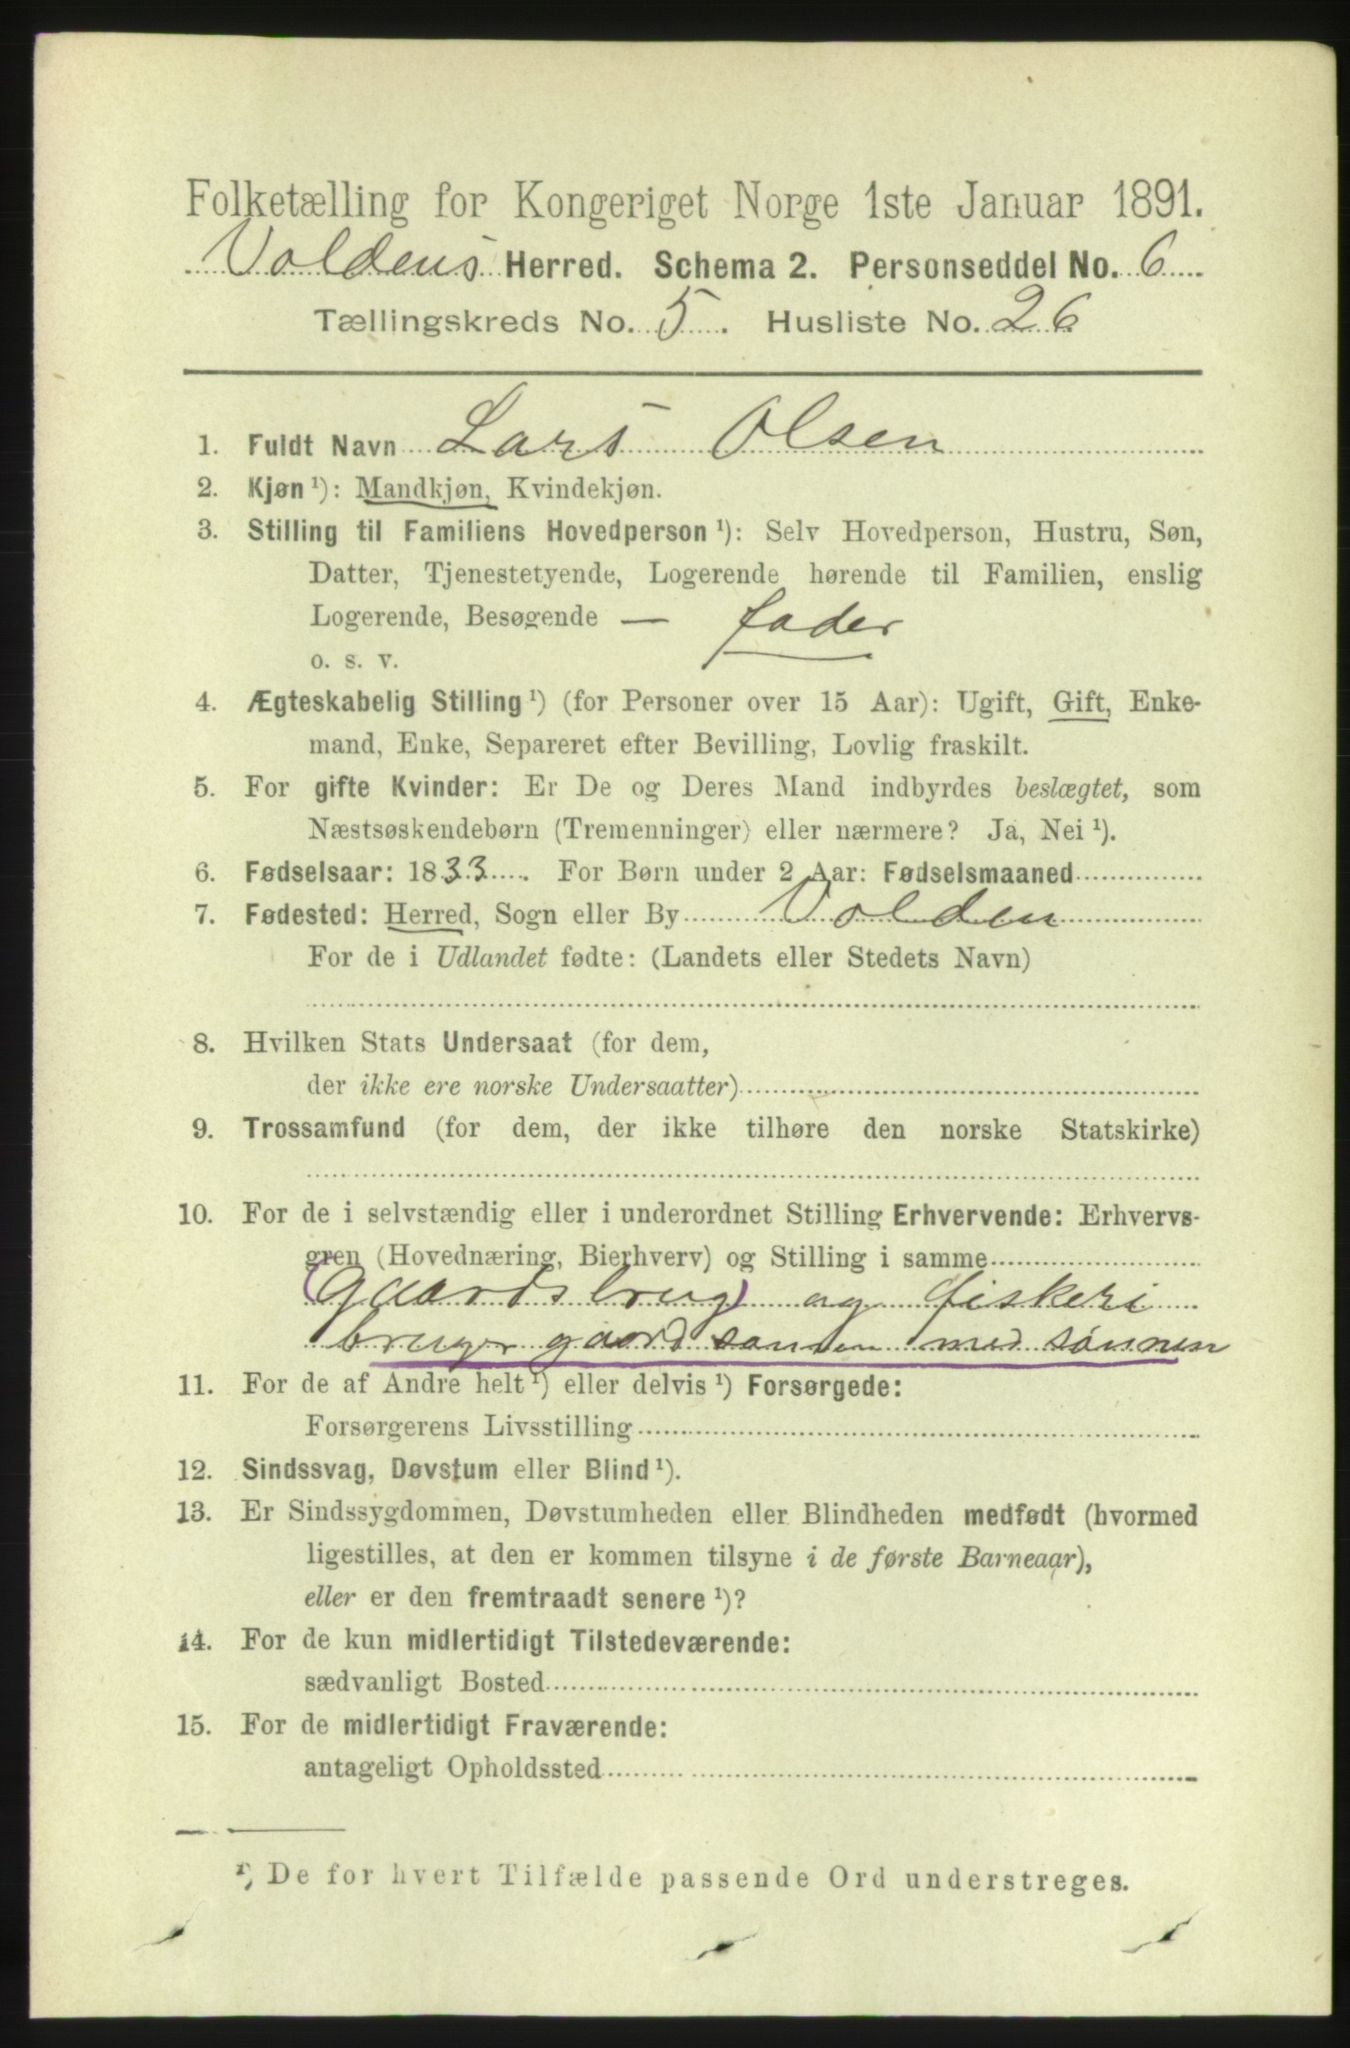 Folketælling for Kongeriget Norge 1ste Januar 1891.
Voldens Herred. Schema 2. Personseddel No. 6
Tællingskreds No. 5. Husliste No. 26
1. Fuldt Navn Lars Olsen
2. Kjøn ¹): Mandkjøn, Kvindekjøn.
3. Stilling til Familiens Hovedperson ¹): Selv Hovedperson, Hustru, Søn,
Datter, Tjenestetyende, Logerende hørende til Familien, enslig
Logerende, Besøgende — fader
o. s. v.
4. Ægteskabelig Stilling ¹) (for Personer over 15 Aar): Ugift, Gift, Enke-
mand, Enke, Separeret efter Bevilling, Lovlig fraskilt.
5. For gifte Kvinder: Er De og Deres Mand indbyrdes beslægtet, som
Næstsøskendebørn (Tremenninger) eller nærmere? Ja, Nei ¹).
6. Fødselsaar: 1833. For Børn under 2 Aar: Fødselsmaaned
7. Fødested: Herred, Sogn eller By Volden
For de i Udlandet fødte: (Landets eller Stedets Navn)
8. Hvilken Stats Undersaat (for dem,
der ikke ere norske Undersaatter)
9. Trossamfund (for dem, der ikke tilhøre den norske Statskirke)
10. For de i selvstændig eller i underordnet Stilling Erhvervende: Erhvervs-
gren (Hovednæring, Bierhverv) og Stilling i samme
(Gaardsbrug) og fiskeri
bruger gaard sammen med sønnen
11. For de af Andre helt ¹) eller delvis ¹) Forsørgede:
Forsørgerens Livsstilling
12. Sindssvag, Døvstum eller Blind ¹).
13. Er Sindssygdommen, Døvstumheden eller Blindheden medfødt (hvormed
ligestilles, at den er kommen tilsyne i de første Barneaar),
eller er den fremtraadt senere ¹)?
14. For de kun midlertidigt Tilstedeværende:
sædvanligt Bosted
15. For de midlertidigt Fraværende:
antageligt Opholdssted
¹) De for hvert Tilfælde passende Ord understreges.